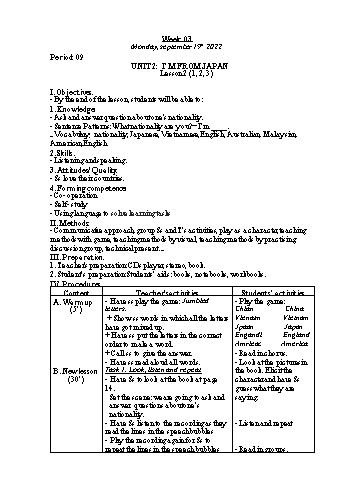 Week: 03
Monday, september 19th 2022
Period: 09
UNIT 2: I'M FROM JAPAN
Lesson 2 (1, 2, 3)
I. Objectives.
- By the end of the lesson, students will be able to:
1. Knowledge:
- Ask and answer question about one's nationality.
- Sentence Patterns: What nationality are you? – I'm ___
- Vocabulary: nationality, Japanese, Vietnamese, English, Australian, Malaysian,
American, English.
2. Skills.
- Listening and speaking.
3. Attitudes/ Quality:
- Ss love their countries.
4. Forming competences
- Co- operation
- Self- study
- Using language to solve learning tasks
II. Methods:
- Communicative approach, group Ss and T's activities, play as a character, teaching
methods with game, teaching methods by visual, teaching methods by practising
discussion group, technical present...
III. Preparation.
1. Teacher's preparation: CDs player, stereo, book.
2. Student's preparation: Students' aids: books, notebooks, workbooks.
IV. Procedures.
Content Teacher's activities Students' activities
A. Warm up
(5')
- Have ss play the game: Jumbled
letters.
+ Show ss words in which all the letters
have got mixed up.
+ Have ss put the letters in the correct
order to make a word.
+ Call ss to give the answer.
- Have ss read aloud all words.
- Play the game:
China
Vietnam
Japan
England
America
- Read in chorus.
B. New lesson
(30')
Task 1. Look, listen and repeat
- Have Ss to look at the book at page
14.
Set the scene: we are going to ask and
answer questions about one's
nationality.
- Have Ss listen to the recording as they
read the lines in the speech bubbles
- Play the recording again for Ss to
repeat the lines in the speech bubbles
- Look at the picture in
the book. Elicit the
character and have Ss
guess what they are
saying.
- Listen and repeat
- Read in groups.